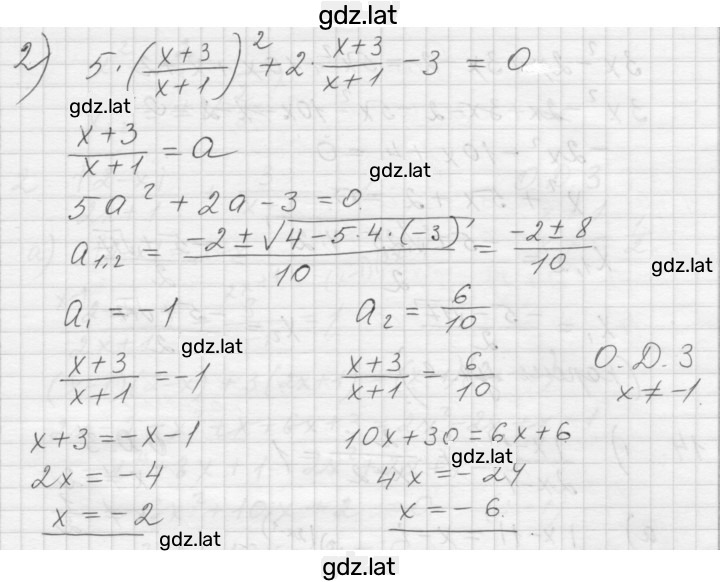 gdz.lat
2) 5·((x+3)/(x+1))² + 2·(x+3)/(x+1) - 3 = 0
gdz.lat
(x+3)/(x+1) = a
gdz.lat
5a² + 2a - 3 = 0
a₁,₂ = (-2 ± √(4 - 5·4·(-3)))/10 = (-2 ± 8)/10
gdz.lat
a₁ = -1 a₂ = 6/10
gdz.lat
(x+3)/(x+1) = -1 (x+3)/(x+1) = 6/10 О.Д.З
x ≠ -1
x+3 = -x-1 10x+30 = 6x+6
gdz.lat
2x = -4 4x = -24
x = -2 x = -6
gdz.lat
gdz.lat